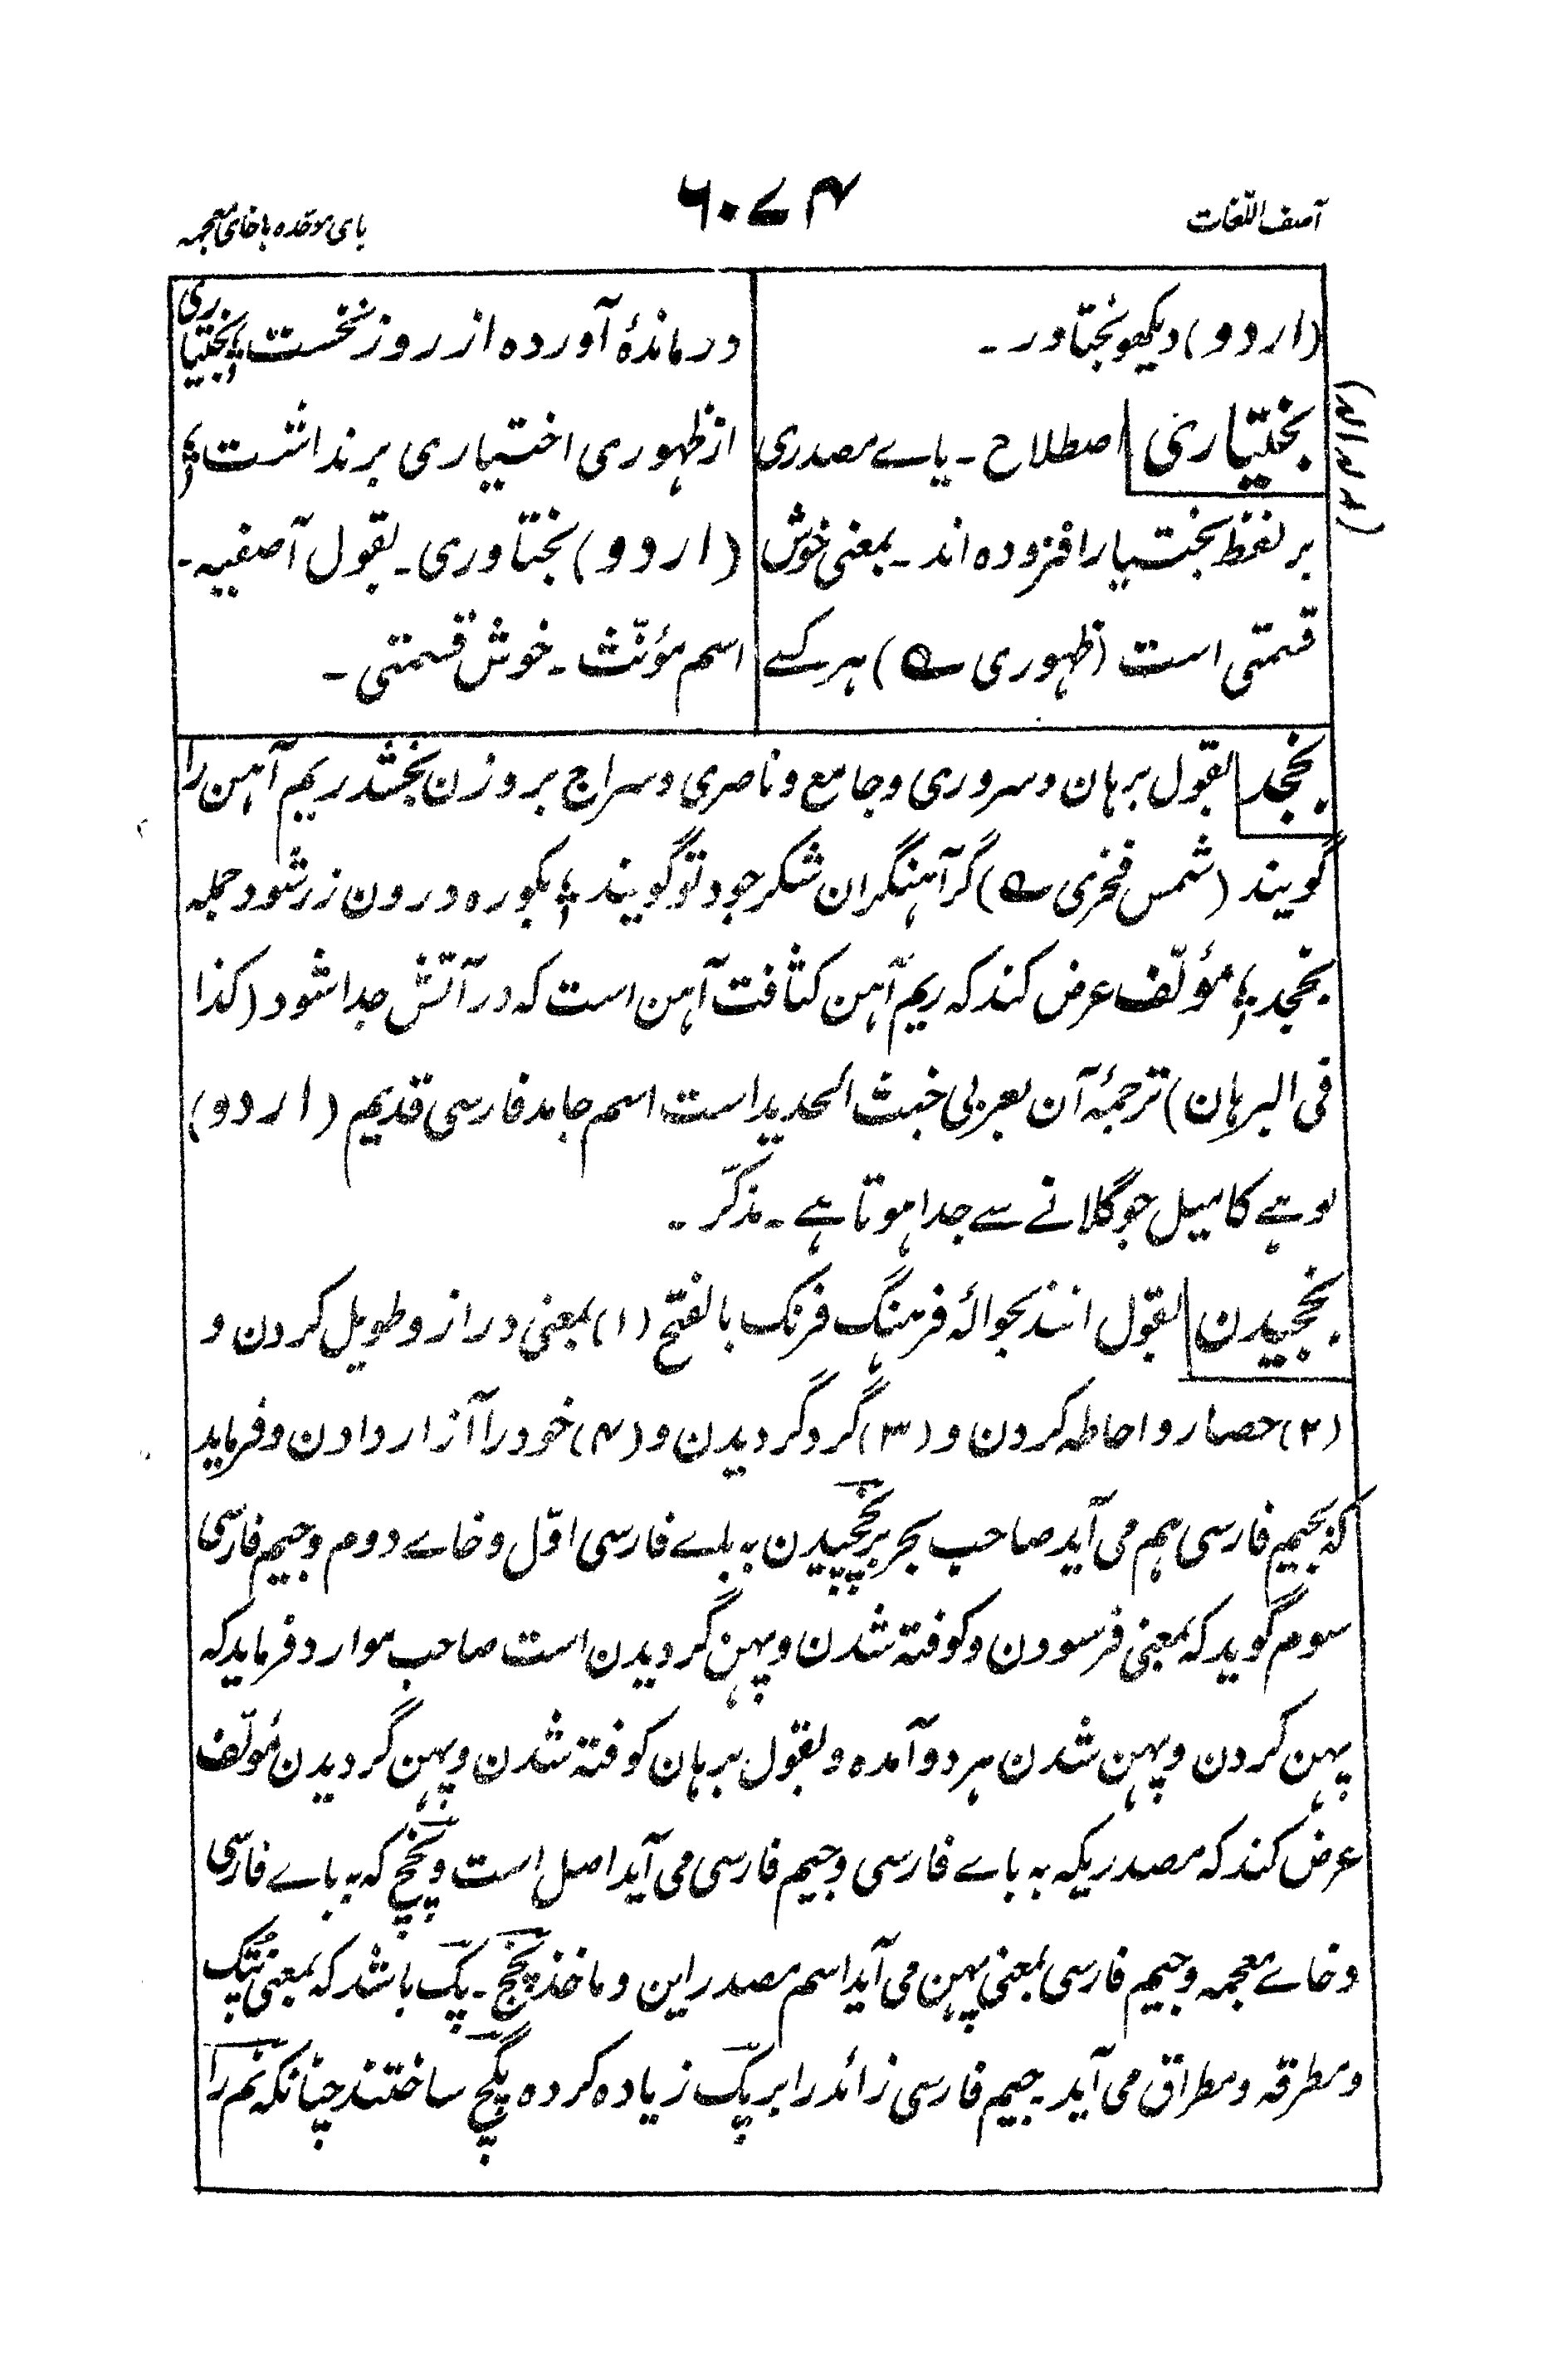 آصف اللغات
۶۰۷۴
بای موحّده با خای معجمه
(اردو) دیکھو بختاور ۔
بختیاری اصطلاح ۔ یاے مصدری
بر لفظ بختیار افزوده اند ۔ بمعنی خوش
قسمتی است (ظهوری ؎) هر کسے
درماندهٔ آورده از روز نخست ؛ بختیاری
از ظهوری اختیاری بر نداشت ؛
(اردو) بختاوری ۔ بقول آصفیه ۔
اسم مؤنّث ۔ خوش قسمتی ۔
بخجد بقول برهان و سروری و جامع و ناصری و سراج بر وزن بخشد ریم آهن را
گویند (شمس فخری ؎) گر آهنگران شکر جود تو گویند ؛ بکوره درون زر شود جمله
بخجد ؛ مؤلّف عرض کند که ریم آهن کثافت آهن است که در آتش جدا شود (کذا
فی البرهان) ترجمهٔ آن بعربی خبث الحدید است اسم جامد فارسی قدیم (اردو)
لوہے کا میل جو گلانے سے جدا ہوتا ہے ۔ مذکّر ۔
بخجیدن بقول انند بحوالهٔ فرهنگ فرنگ بالفتح (۱) بمعنی دراز و طویل کردن و
(۲) حصار و احاطه کردن و (۳) گرد گردیدن و (۴) خود را آزار دادن و فرماید
که بجیم فارسی هم می آید صاحب بحر بر پخچیدن به بلے فارسی اوّل و خاے دوم و جیم فارسی
سوم گوید که بمعنی فرسودن و کوفته شدن و پهن گردیدن است صاحب موارد فرماید که
پهن کردن و پهن شدن هر دو آمده و بقول برهان کوفته شدن و پهن گردیدن مؤلّف
عرض کند که مصدریکه به باے فارسی و جیم فارسی می آید اصل است و پخچ که به باے فارسی
و خاے معجمه و جیم فارسی بمعنی پهن می آید اسم مصدر این و ماخذ پخچ ۔ پک باشد که بمعنی پتک
و مطرقه و مطراق می آید ۔ جیم فارسی زائد را بر پک زیاده کرده پکچ ساختند چنانکه نم را